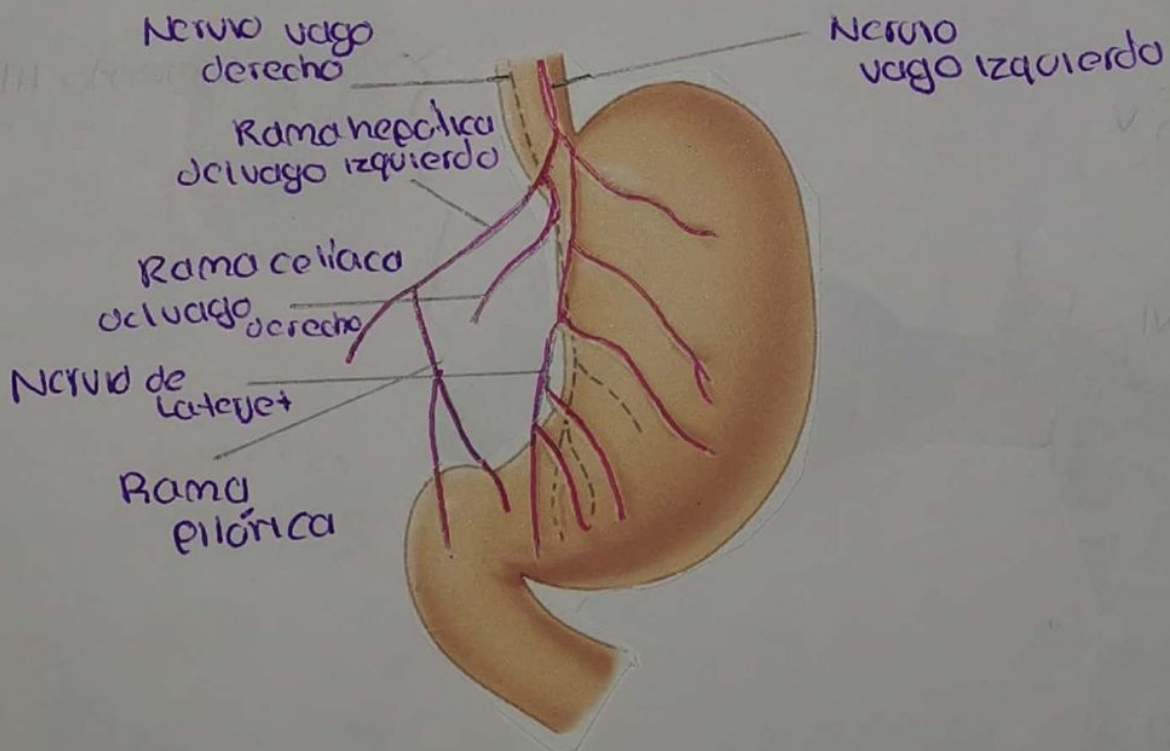 Nervio vago
derecho
Nervio
vago izquierdo
Rama hepática
del vago izquierdo
Rama celíaca
del vago derecho
Nervio de
Laterjet
Rama
pilórica